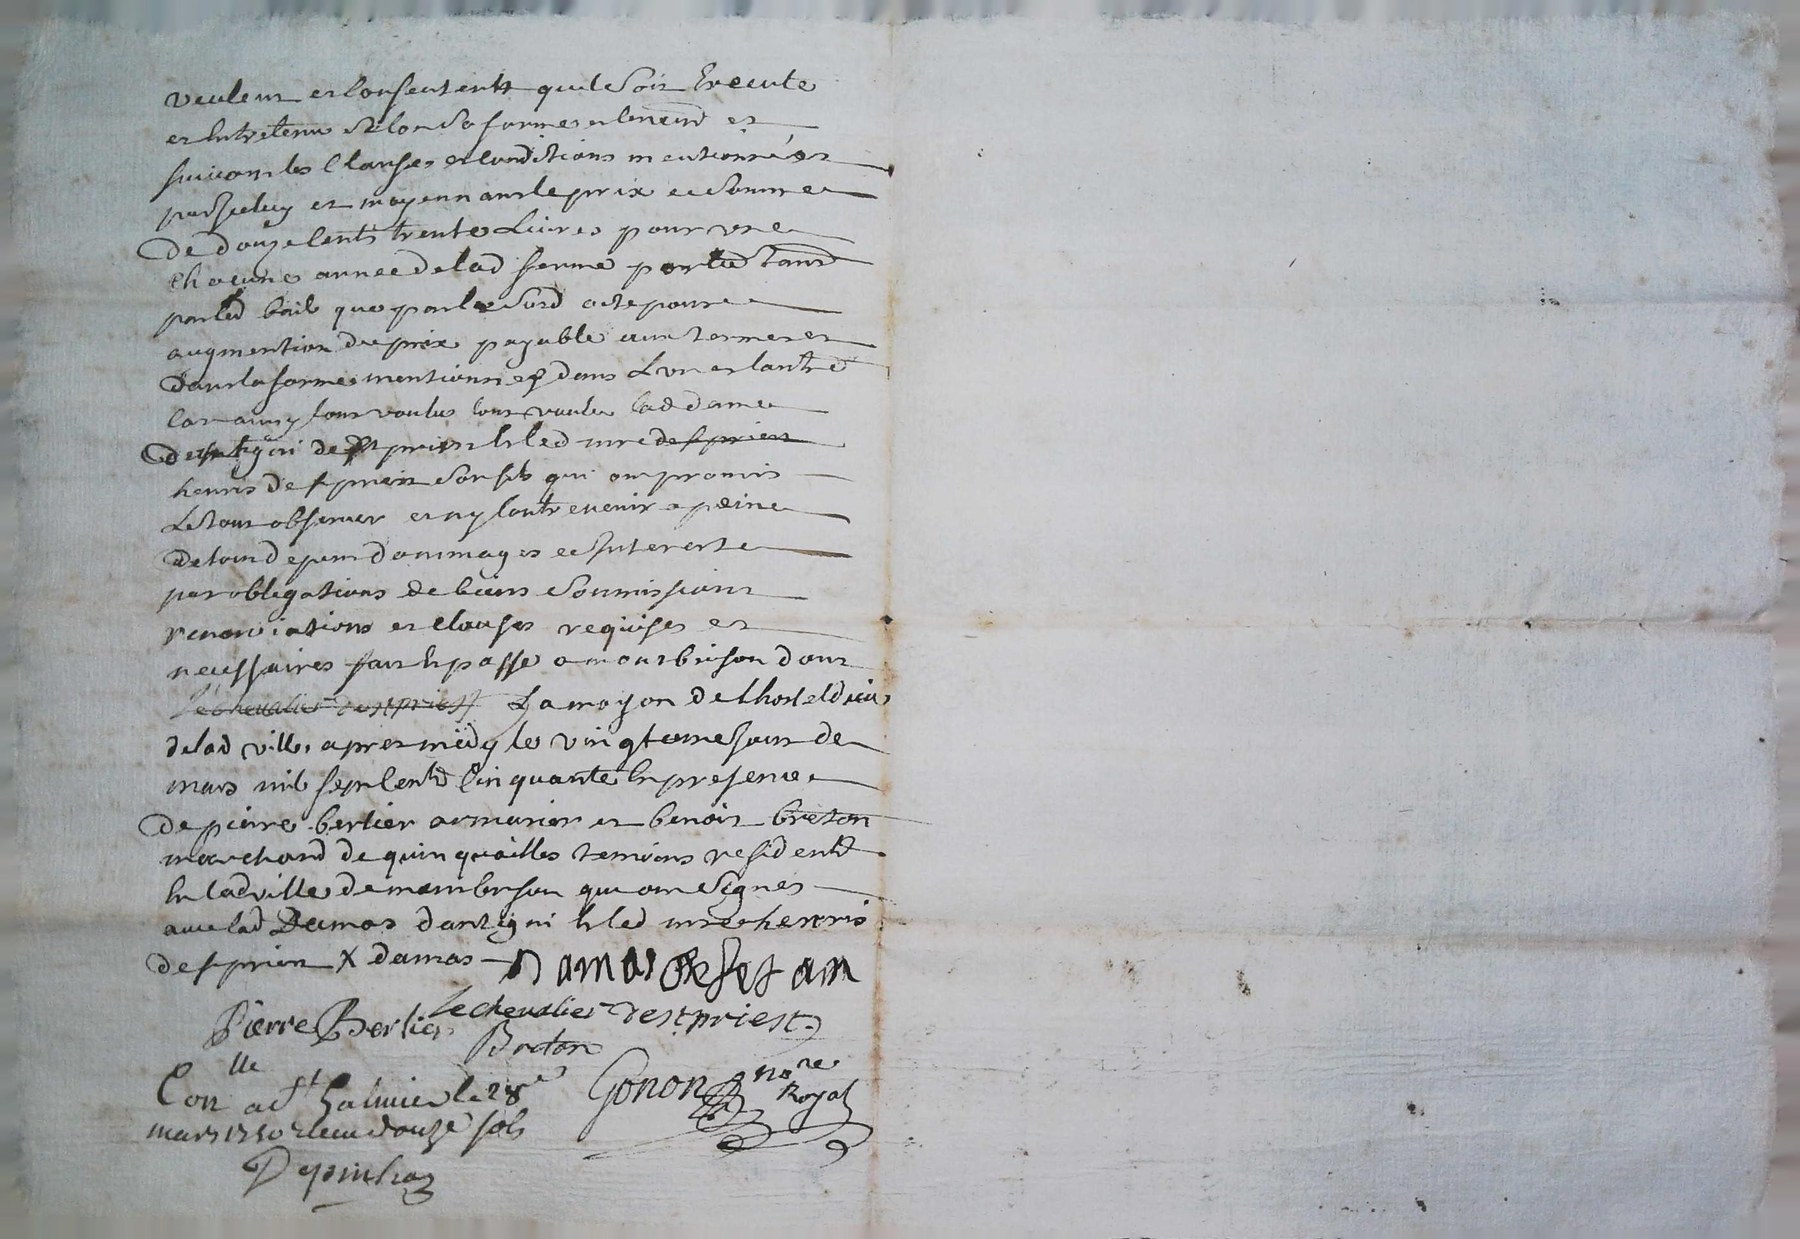 veulent et consentent quil soit Execute
et Entretenu selon sa forme et teneur et
suivant les Clauses et conditions mentionnées
par Iceluy et moyennant le prix et somme
De douze cents trente Livres pour une
Chacune année de lad ferme porté tant
par led bail que par le susd acte pour
augmention du prix payable aux termes et
Dans la forme mentionnes dans Lun et lautre
Car ainsy lont voulus lad dame
Dantigni de st priest et led mre de st priest
henris de st priest son fils qui ont promis
Le tout observer et ny Contrevenir a peine
De tous depens dommages et Interests
par obligations de biens soumissions
renonciations et clauses requises et
necessaires fait et passé a montbrison dans
le chevalier de st priest La mayson de lhostel de
de lad ville, apres midy le vingt jour de
mars mil sept Cents Cinquante En presence
de pierre berlier armurier et benoit breton
marchand de quinquailles temoins residents
En lad ville de montbrison qui ont signés
avec lad Damas dantigni et led mre henris
de st priest X damas Damas
le chevalier de st priest
Pierre Berlier
Breton
Conlle a st Galmier le 28e Gonon nore Royal
mars 1750 douze sols